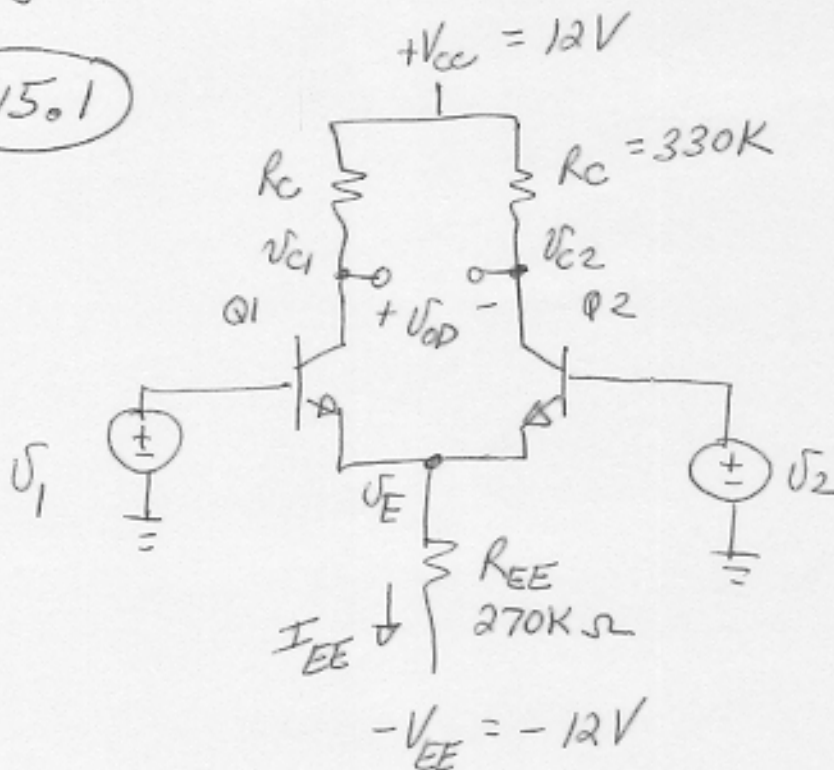 +Vcc = 12V
15.1
Rc
Rc = 330K
vC1
vC2
Q1
+ vOD -
Q2
v1
vE
v2
REE
270K Ω
IEE
-VEE = - 12V